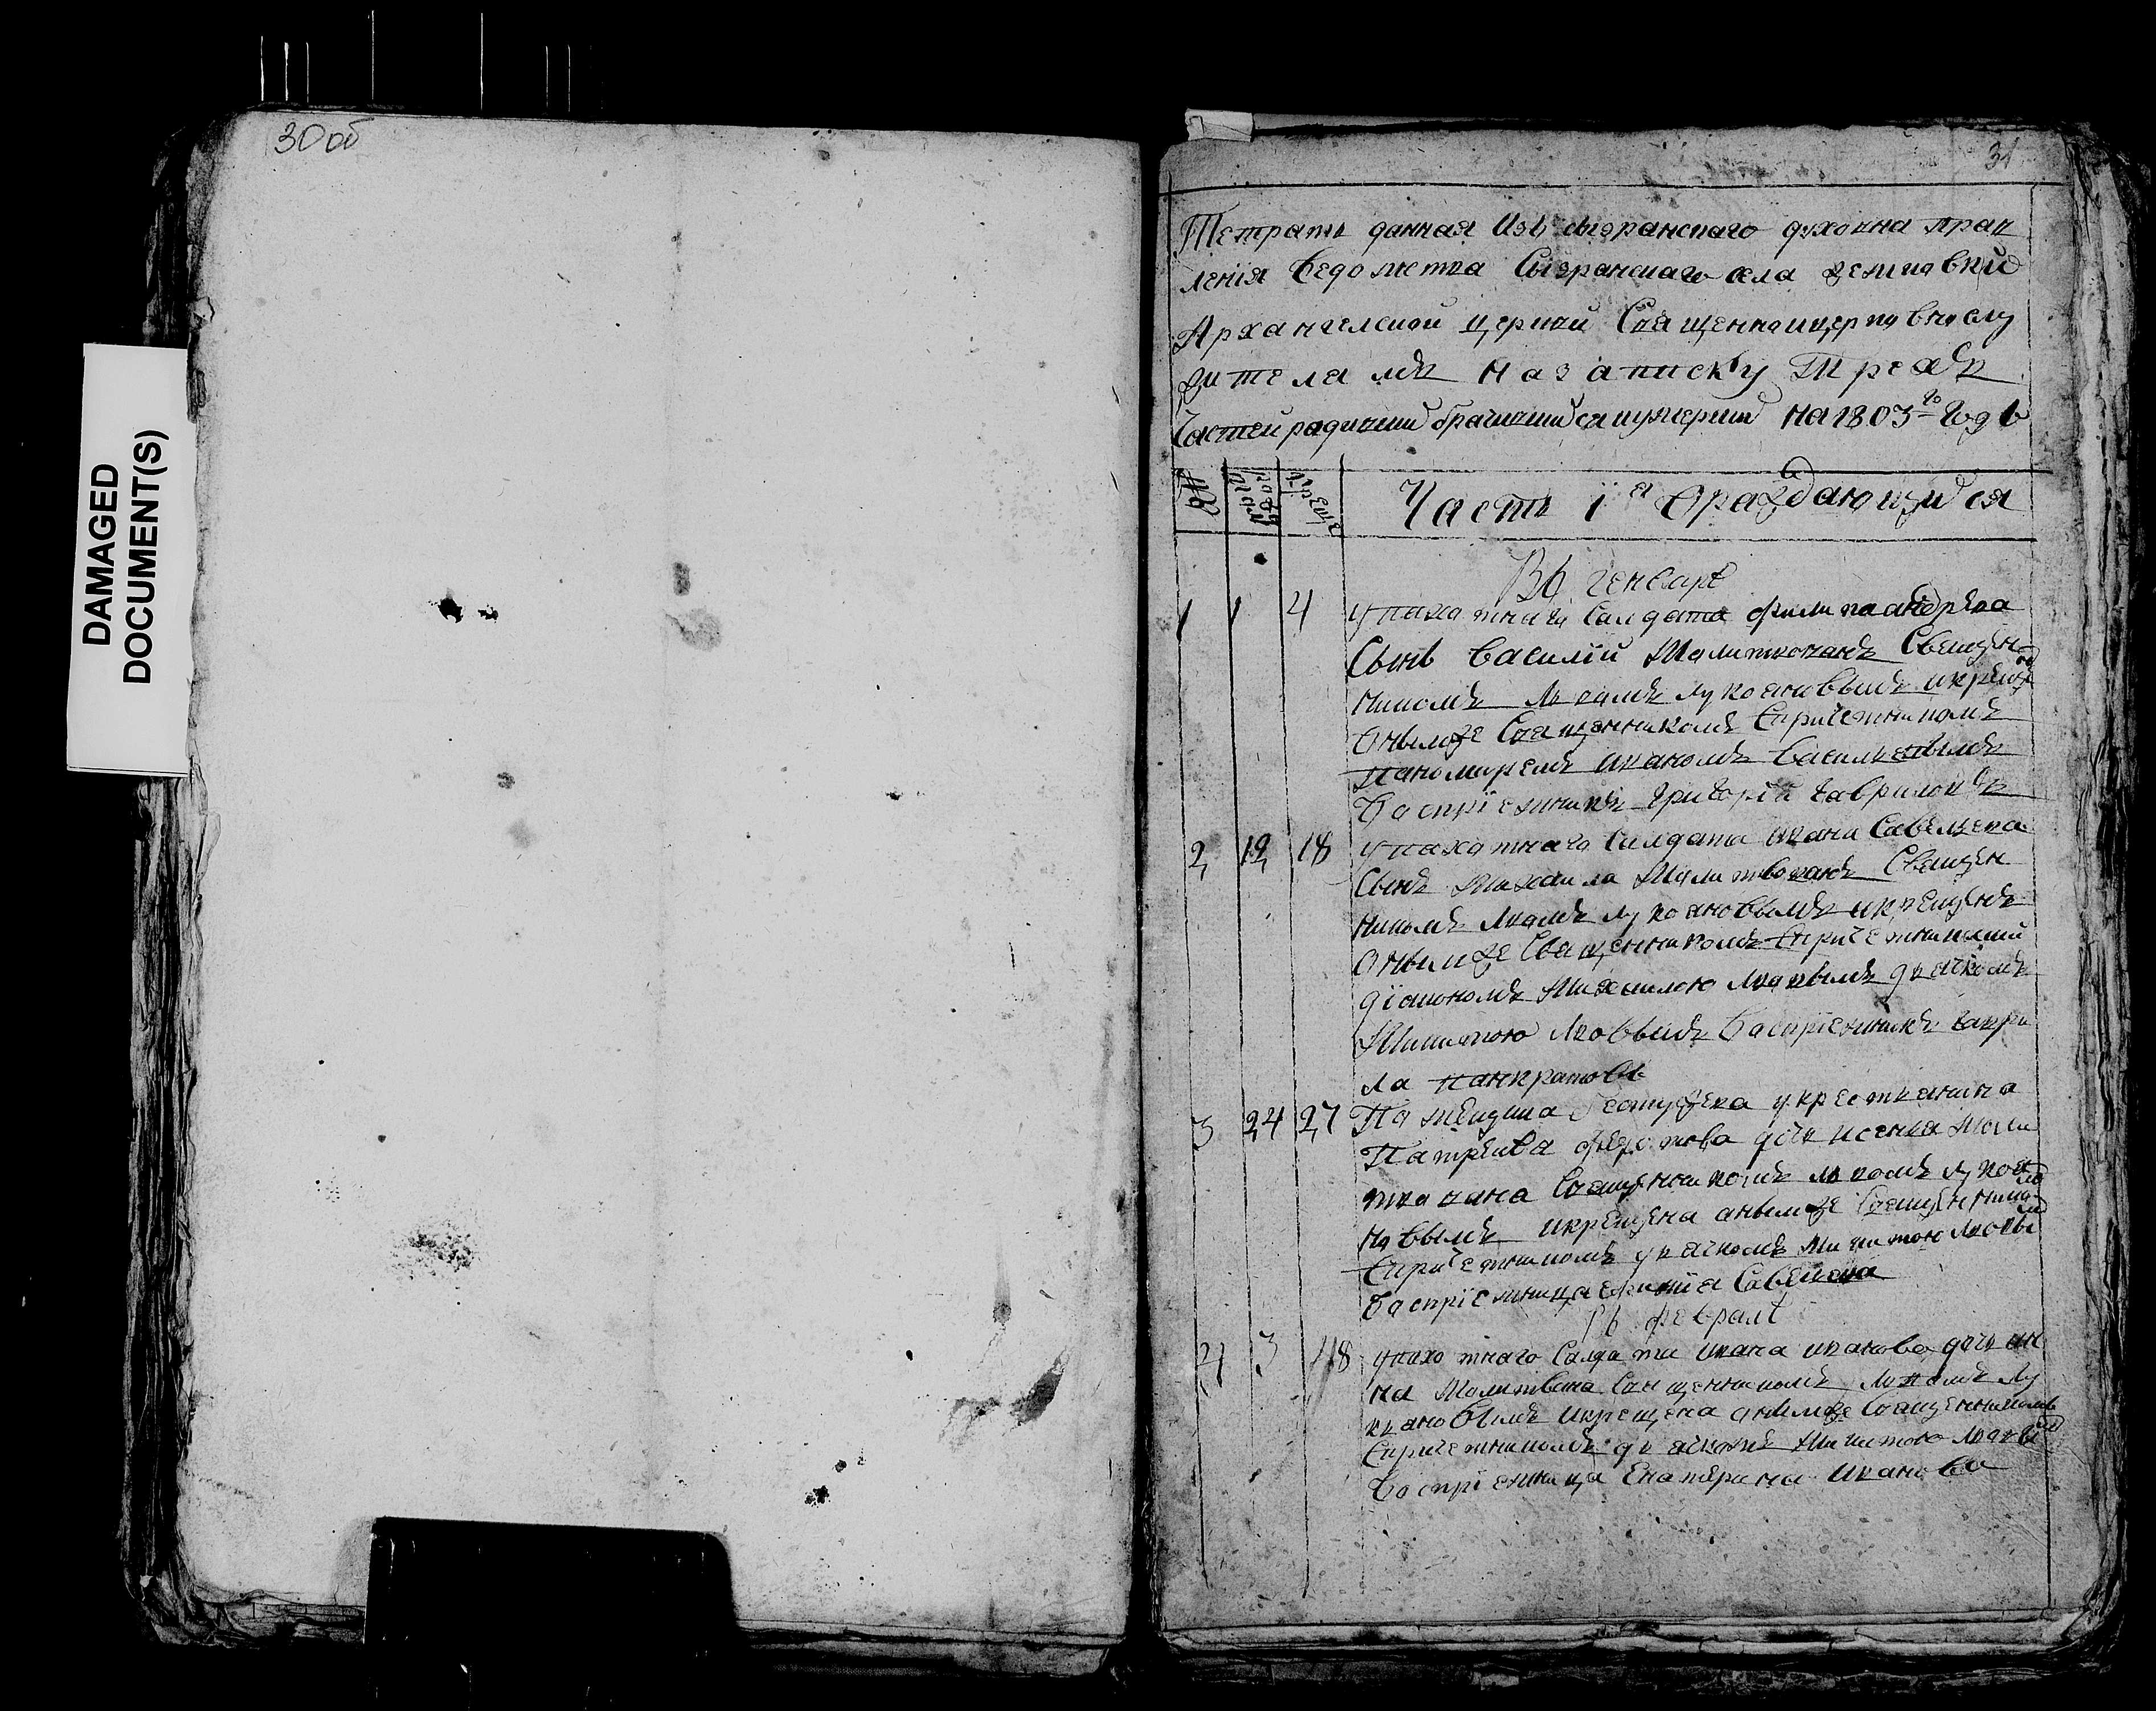 30 об
DAMAGED
DOCUMENT(S)
31
Тетрать данная Изъ сызранскаго духовна прав
ленiя ведомства Сызранскаго села
Архангелской церкви Священно и церковно слу
жителямъ на записку Трехъ
Частей на 1803го Годъ
№
Часть 1я о раждающихся
Въ генваре
1 1 4 у пахотнаго Салдата филипа андрева
Сынъ василiй Молитвованъ Свещен
никомъ Львомъ лукоановымъ и крещенъ
онымже Священникомъ Спричетникомъ
панамаремъ иваномъ васильевымъ
Воспрiемникъ григорiй гавриловъ
2 12 18 у пахотнаго Салдата ивана Савельева
Сынъ михаила Молитвованъ Свещен
никомъ Львомъ лукоановымъ и крещенъ
онымже Священникомъ Спричетниками
дiаконом михаилою Львовымъ дьячкомъ
Никитою Львовымъ Воспрiемникъ гаври
ла панкратовъ
3 24 27 Помещика у крестьянина
федотова дочь Моли
твована Свещенникомъ Львомъ лукоа
новымъ и крещена онымже Свещенником
Спричетникомъ дьячкомъ Никитою Львовы
Воспрiемница Савельева
Въ феврале
4 3 у пахотнаго Салдата ивана иванова дочь ан
на Молитвована Священникомъ Львомъ лу
кьановымъ и крещена онымже Священникомъ
Спричетникомъ дьячкомъ Никитою Львовы
Воспрiемница Екатерина иванова